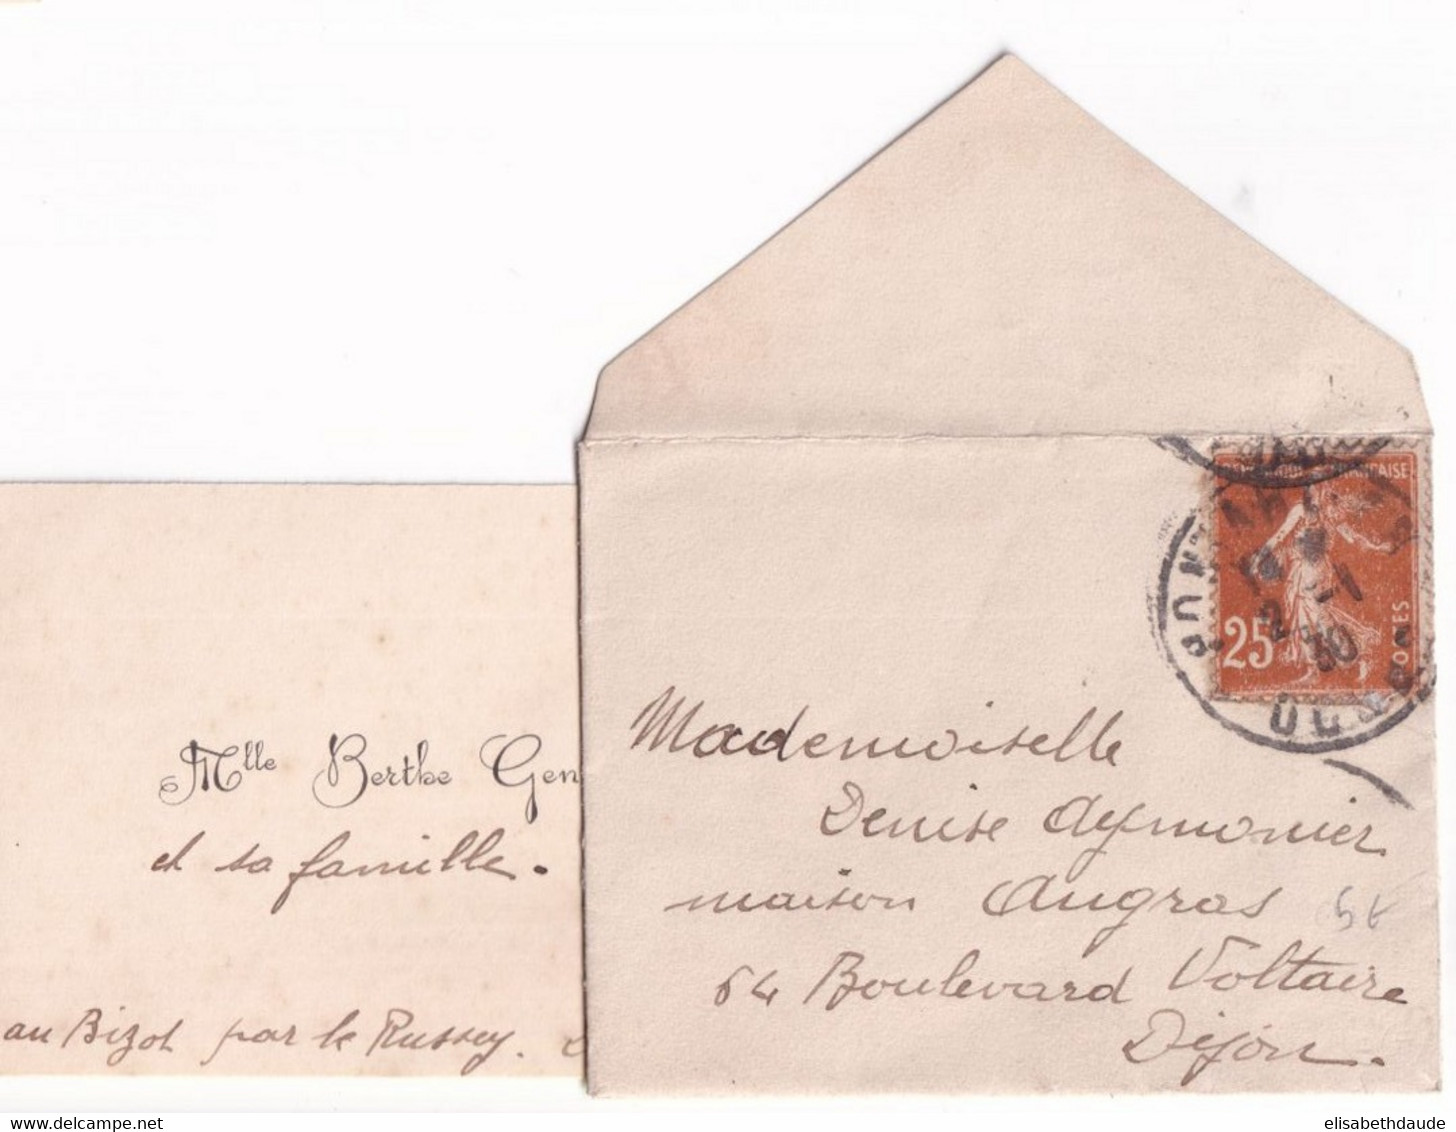 Mlle Berthe Gen
et sa famille.
au Bizot par le Russey.
FRANÇAISE
25
2 -1
30
Mademoiselle
Denise Aymonier
maison Augros
64 Boulevard Voltaire
Dijon.
delcampe.net
elisabethdaude